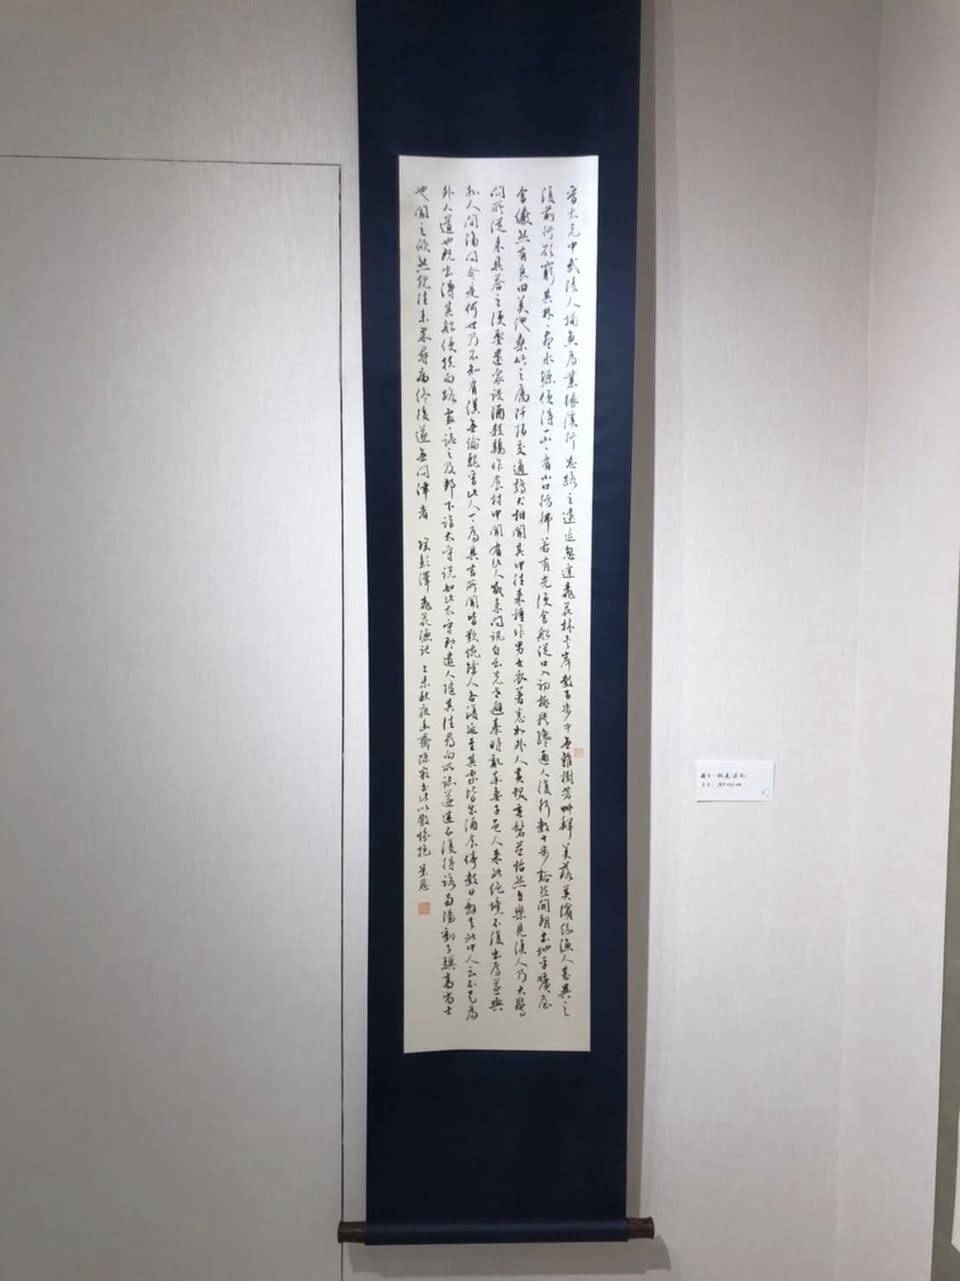 晉太元中武陵人捕魚為業緣溪行忘路之遠近忽逢桃花林夾岸數百步中無雜樹芳草鮮美落英繽紛漁人甚異之
復前行欲窮其林林盡水源便得一山山有小口彷彿若有光便舍船從口入初極狹纔通人復行數十步豁然開朗土地平曠屋
舍儼然有良田美池桑竹之屬阡陌交通鷄犬相聞其中往來種作男女衣著悉如外人黃髮垂髫並怡然自樂見漁人乃大驚
問所從來具答之便要還家設酒殺鷄作食村中聞有此人咸來問訊自云先世避秦時亂率妻子邑人來此絕境不復出焉遂與
外人間隔問今是何世乃不知有漢無論魏晉此人一一為具言所聞皆歎惋餘人各復延至其家皆出酒食停數日辭去此中人云不足為
外人道也既出得其船便扶向路處處誌之及郡下詣太守說如此太守即遣人隨其往尋向所誌遂迷不復得路南陽劉子驥高尚士
也聞之欣然規往未果尋病終後遂無問津者 陶彭澤桃花源記 秋夜 書此以散懷抱